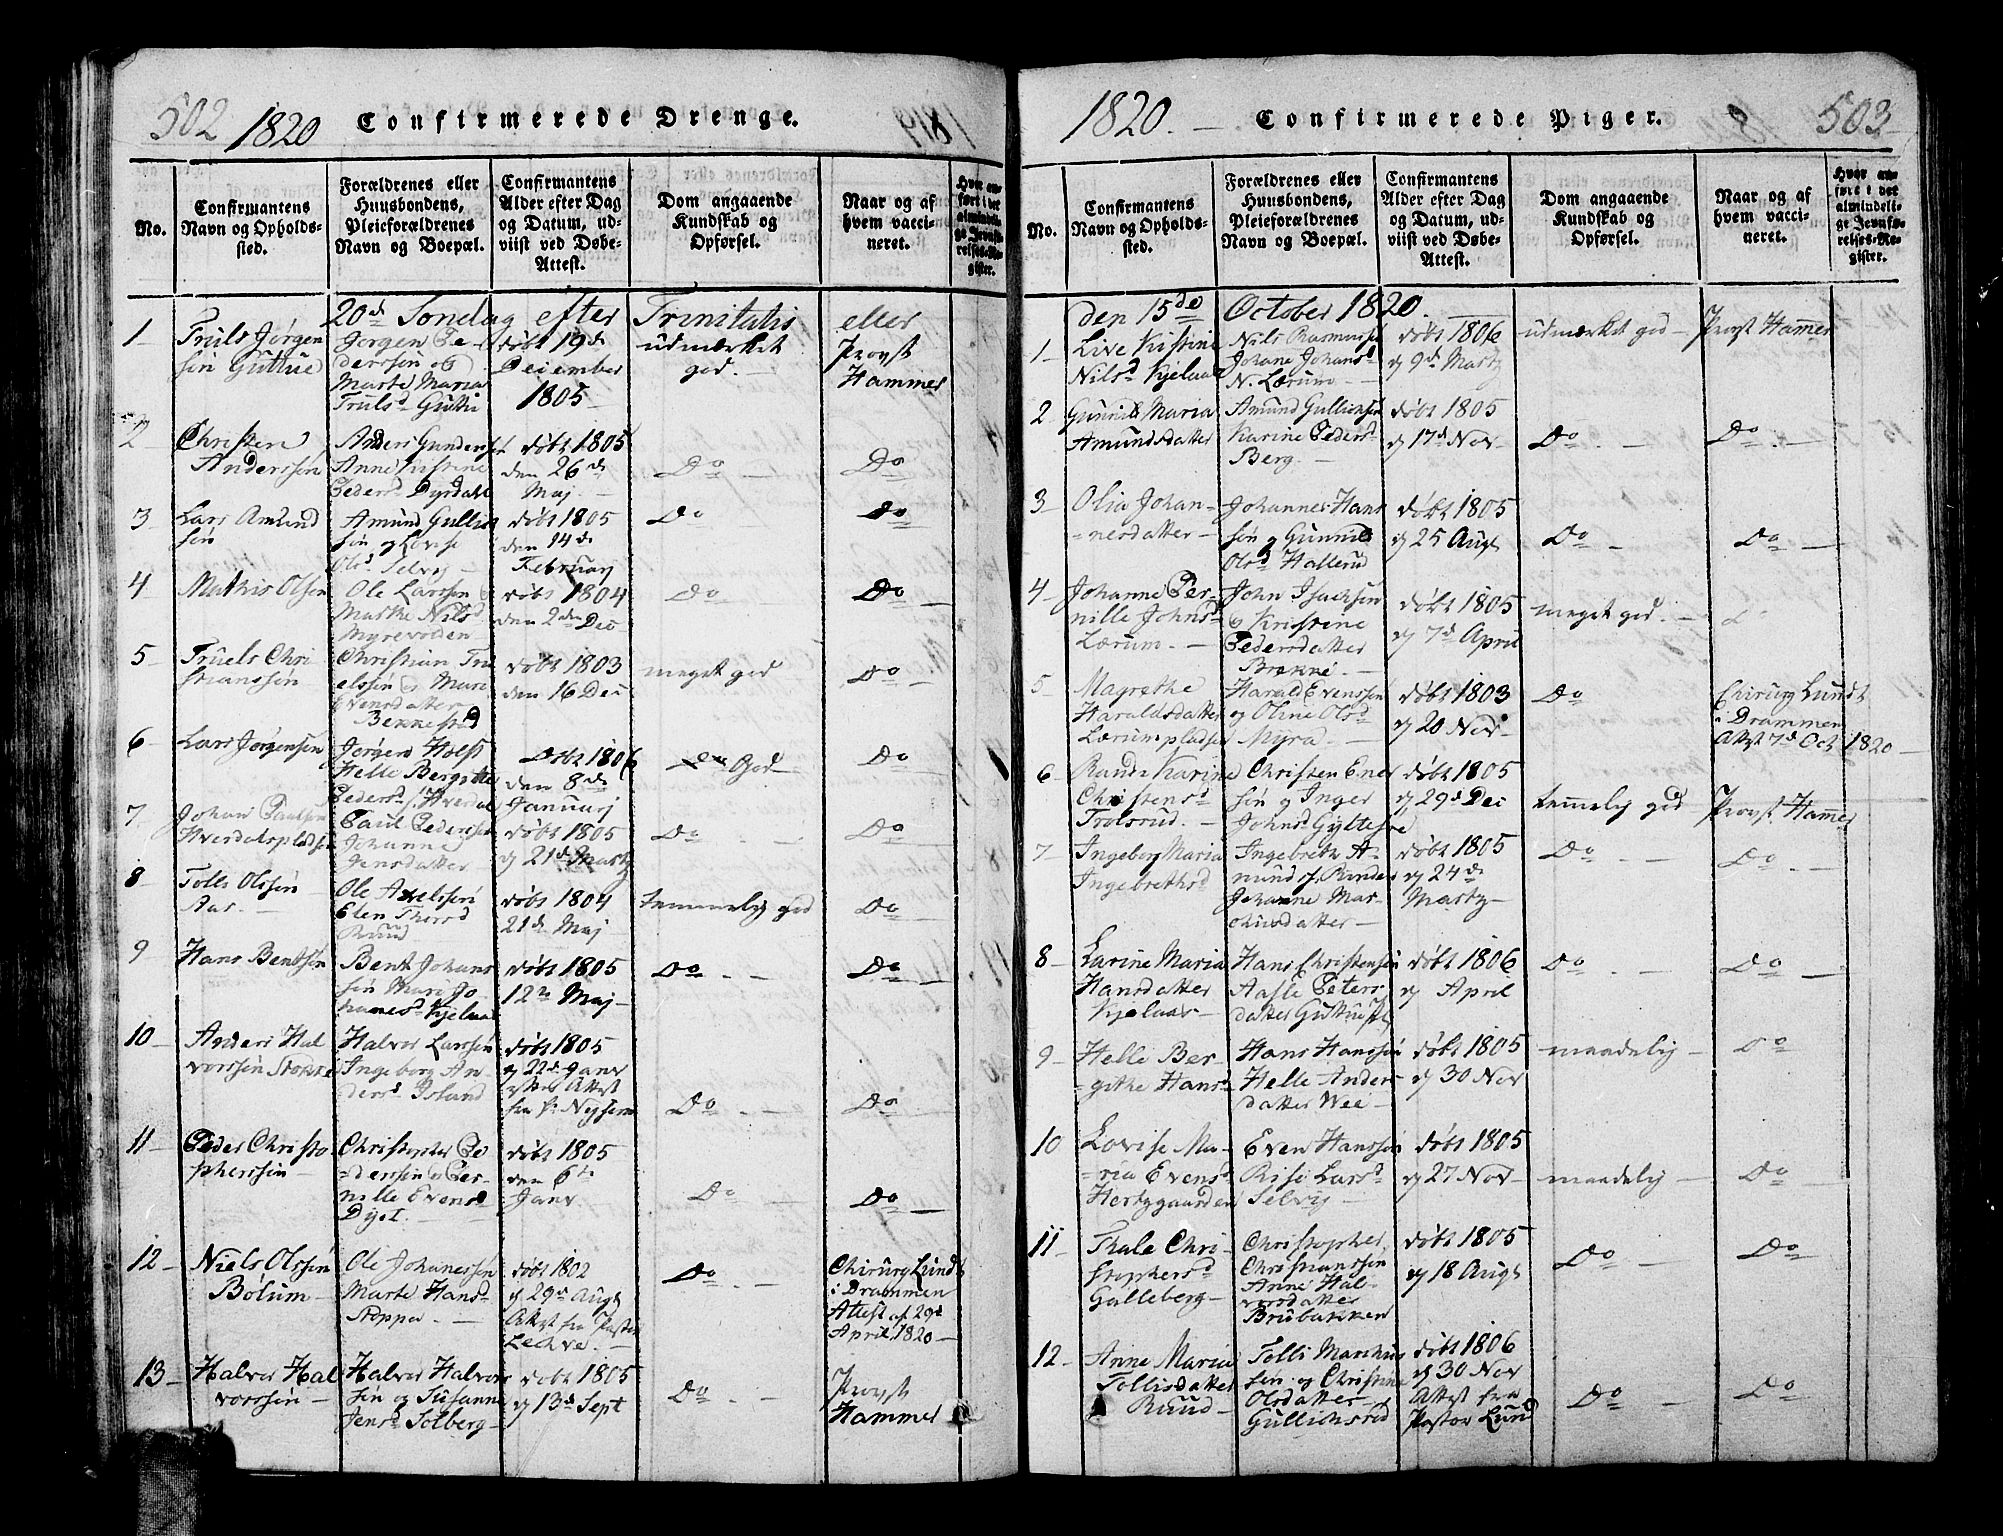 502 1820 Confirmerede Drenge.
No.
Confirmantens
Navn og Opholds-
sted.
Forældrenes eller
Huusbondens,
Pleieforældrenes
Navn og Boepæl.
Confirmantens
Alder efter Dag
og Datum, ud-
viist ved Døbe-
Attest.
Dom angaaende
Kundskab og
Opførsel.
Naar og af
hvem vacci-
neret.
Hvor an-
ført i det
almindeli-
ge Jevnfø-
relses-Re-
gister.
20d Søndag efter Trinitatis eller
1
Truls Jørgen
sön Guttue
Jörgen Pe-
derssön og
Marte Maria
Trulsd Guttu
döbt 19d
December
1805
udmærket
god.
Provst
Hammer
2
Christen
Anderssön
Anders Gundersen
Anne Kistine
Pedersd Dyrdahl
döbt 1805
den 26d
Maj
Do
Do
3
Lars Amund
sön
Amund Gullics
sön og Lovise
Olsd Selvig
döbt 1805
den 14d
Februarj
Do
Do
4
Mathis Olsen
Ole Larssön
Marthe Nilsd
Myrevolden
döbt 1804
den 2den Dec
Do
Do
5
Truels Chri
stianssön
Christian Tru
elssön og Mari
Evensdatter
Bekkestad
döbt 1803
den 16 Dec
meget god
Do
6
Lars Jörgensen
Jörgen Holst
Helle Bergitte
Pedersd Hverdal
Döbt 1806
den 8de
Januarj
God
Do
7
Johan Paulsen
Hverdalspladsen
Paul Pedersen
Johanne
Jensdatter
döbt 1805
d 21d Martz
Do
Do
8
Tolls Olssön
Aas
Ole Axelssön
Elen Thorsd
Ruud
döbt 1804
21d Maj
temmelig god
Do
9
Hans Bentsön
Bent Johans
sön Mari Jo
hanesd Kjelaas
döbt 1805
12te Maj
Do
Do
10
Anders Hal
vorssön Stokke
Halvor Larssön
Ingeborg An
dersd Island
döbt 1805
d 22d Janv
Attest
fra
Do
Do
11
Peder Christo
pherssön
Christopher Pe
derssön og Per
nille Evensd
döbt 1805
den 6te
Janv
Do
Do
12
Niels Olssön
Bolum
Ole Johanessön
Marte Hansd
Stoppen
döbt 1802
d 29d Augt
Attest fra Pastor
Chirurg Lundt
i Drammen
Attest af 29d
April 1820
Do
13
Halvor Hal
vorssön
Halvor Halvors
sön og Susanne
Jensd Solberg
döbt 1805
d 13d Sept
Do
Provst
Hammer
1820. Confirmerede Piger. 503
No.
Confirmantens
Navn og Opholds-
sted.
Forældrenes eller
Huusbondens,
Pleieforældrenes
Navn og Boepæl.
Confirmantens
Alder efter Dag
og Datum, ud-
viist ved Døbe-
Attest.
Dom angaaende
Kundskab og
Opførsel.
Naar og af
hvem vacci-
neret.
Hvor an-
ført i det
almindeli-
ge Jevnfø-
relses-Re-
gister.
den 15de October 1820.
1
Live Kistine
Nilsd Kjelaas
Nils Rasmussen
Johane Johansd
N. Lærum
döbt 1806
d 9d Martz
udmærket god
Provst Hamer
2
Gunnild Maria
Amundsdatter
Amund Gullicksen
Karine Pedersd
Berg
döbt 1805
d 17d Nov
Do
Do
3
Olia Johan-
nesdatter
Johannes Hans
sön og Gunnild
Olsd Hallerud
döbt 1805
d 25 Augt
Do
Do
4
Johanne Per-
nille Johnsd
Lærum
John Isachsön
og Kristene
Pedersdatter
Brekke
döbt 1805
d 7d April
meget god
5
Magrethe
Haraldsdatter
Lærumspladsen
Harald Evenssön
og Oline Olsd
Myra
döbt 1803
d 20 Nov
Do
Chirurg Lundt
i Drammen
Attest 7d Oct 1820
6
Rande Karine
Christensd
Trolsrud
Christen Ener
sön og Inger
Johnsd
döbt 1805
d 29d Dec
temmelig god
Provst Hamer
7
Ingeborg Maria
Ingebrethsd
Ingebreth A-
munds
Johanne Mar-
chusdatter
döbt 1805
d 24de
Martz
Do
Do
8
Larine Maria
Hansdatter
Kjelaas
Hans Christensön
Aasle Peters
datter
döbt 1806
d April
Do
Do
9
Helle Ber-
githe Hansd
Hans Hanssön
Helle Anders-
datter Wee
döbt 1805
d 30 Nov
maadelig
Do
10
Lovise Ma-
ria Evensd
Hertygaarden
Even Hanssön
Risi Larsd
Selvig
döbt 1805
d 27 Nov
maadelig
Do
11
Thale Chri-
stophersd
Galleberg
Christopher
Christianssön
Anne Hal-
vorsdatter
Brubakken
döbt 1805
d 18 Augt
Do
Do
12
Anne Maria
Tollisdatter
Ruud
Tolli Marchus
sön og Christine
Olsdatter
Gullichsrud
döbt 1806
d 30 Nov
Attest fra
Pastor Lund
Do
Do